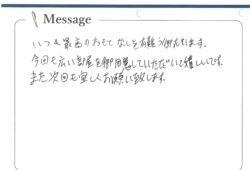 Message
いつも最高のおもてなしを有難う御座います。
今回も広い部屋を御用意していただいて嬉しいです。
また次回も宜しくお願い致します。